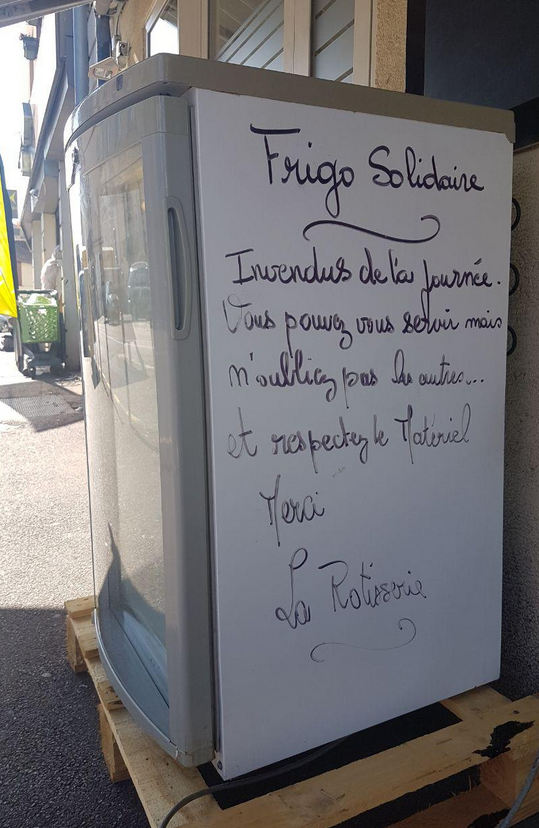 Frigo Solidaire
Invendus de la journée.
Vous pouvez vous servir mais
n'oubliez pas les autres...
et respectez le Matériel
Merci
La Rotisserie